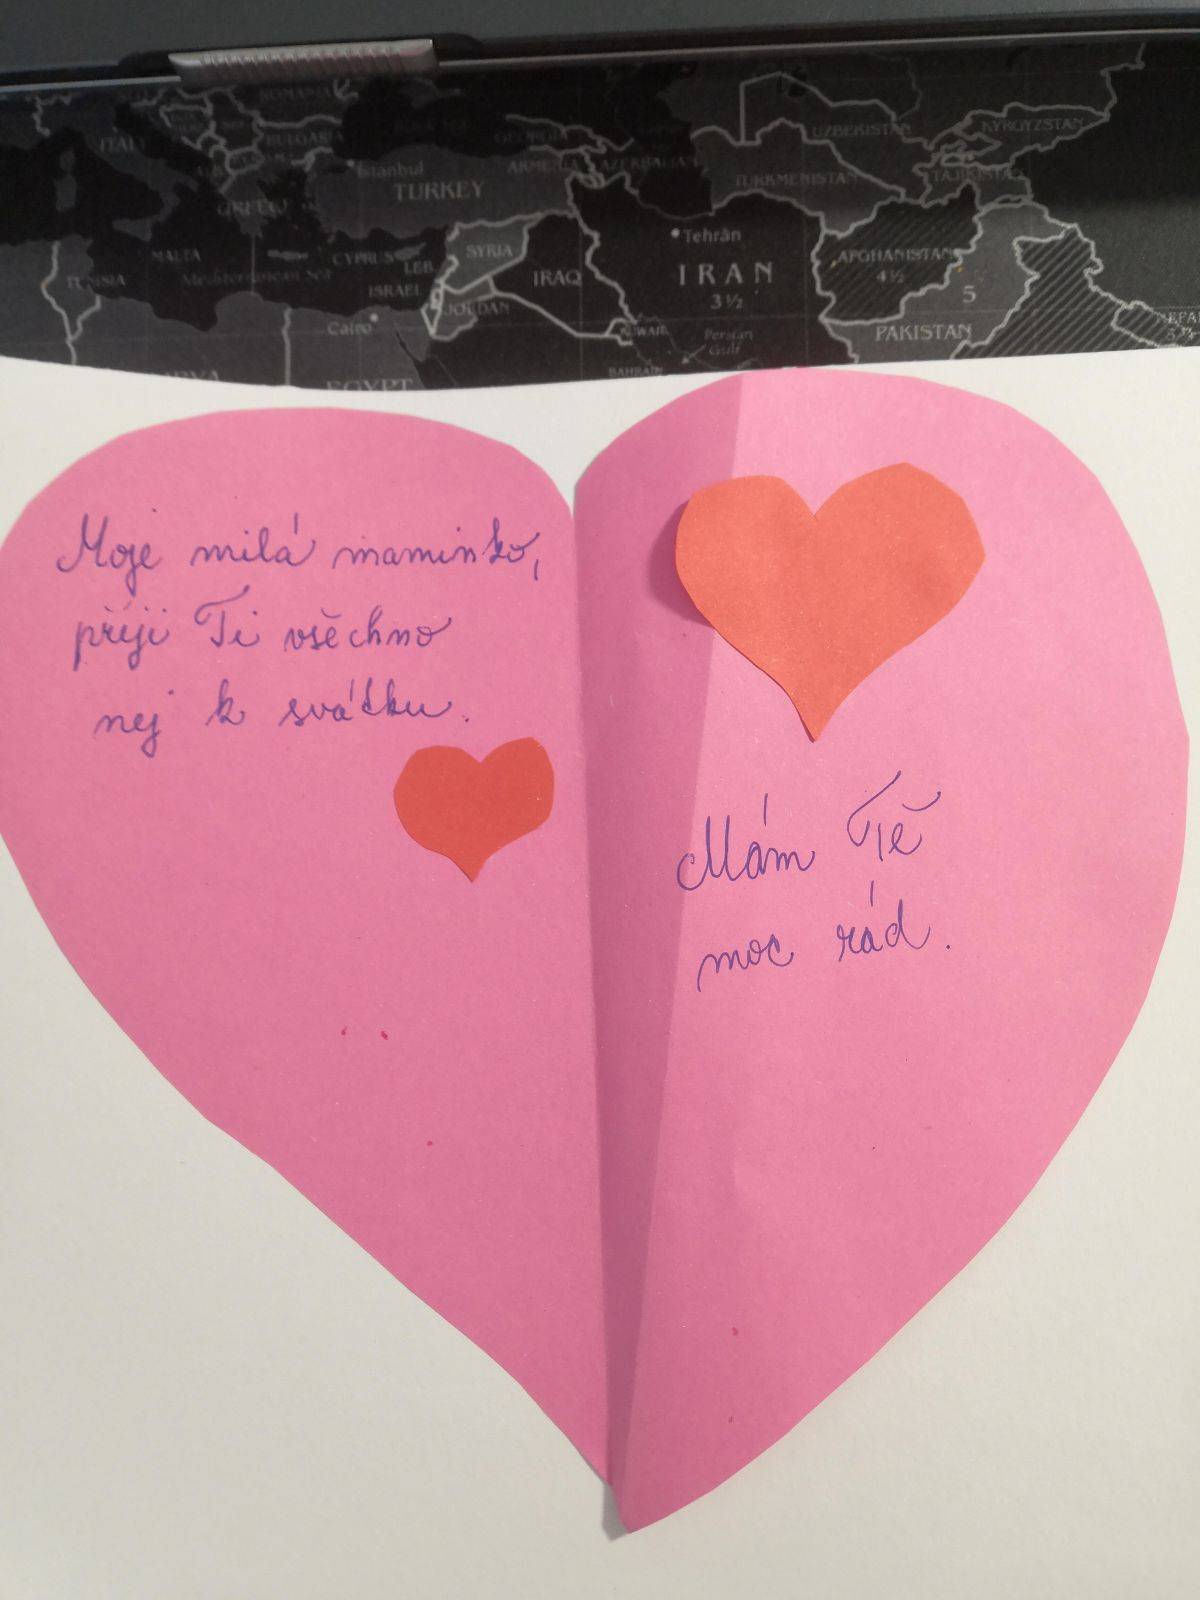 ROMANIA
ITALY
BULGARIA
GEORGIA
UZBEKISTAN
KYRGYZSTAN
Istanbul
ARMENIA
AZERBAIJAN
TURKMENISTAN
TAJIKISTAN
TURKEY
GREECE
Tehrān
MALTA
SYRIA
AFGHANISTAN
4½
TUNISIA
Mediterranean Sea
CYPRUS
LEB.
IRAQ
IRAN
3½
5
ISRAEL
JORDAN
Cairo
KUWAIT
Persian
Gulf
PAKISTAN
BAHRAIN
EGYPT
Moje milá maminko,
přeji Ti všechno
nej k svátku.
Mám Tě
moc rád.